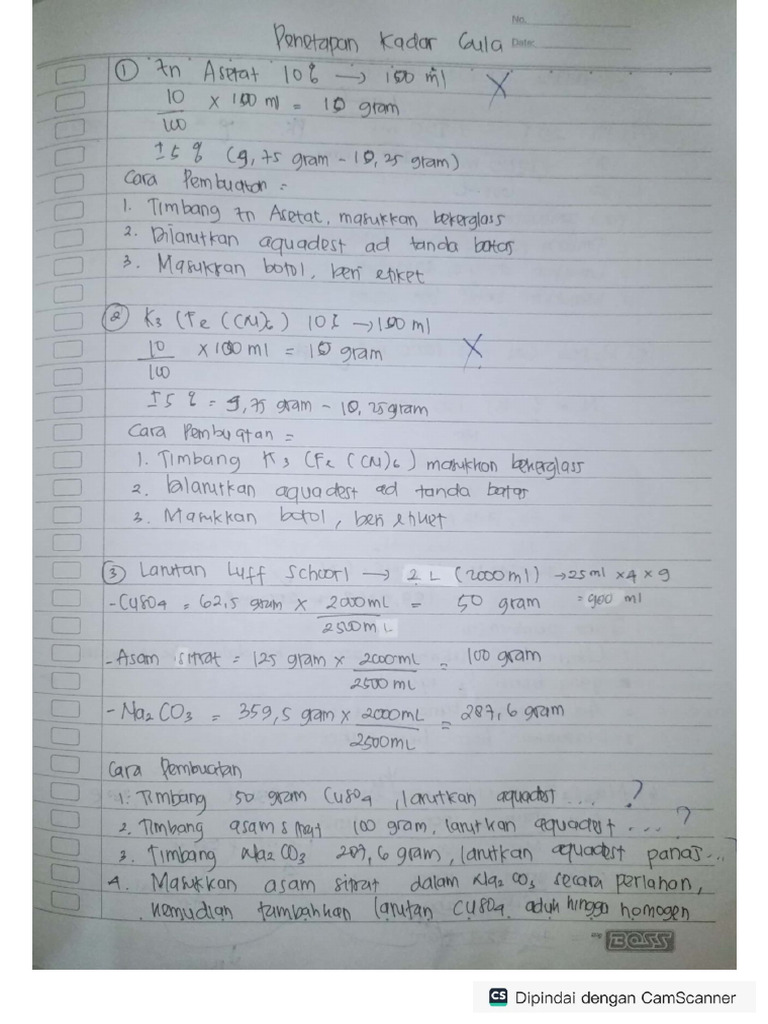 No.
Date:
Penetapan Kadar Gula
① Zn Asetat 10% → 100 ml X
10/100 x 100 ml = 10 gram
±5% (9,75 gram - 10,25 gram)
Cara Pembuatan =
1. Timbang Zn Asetat, masukkan bekerglass
2. Dilarutkan aquadest ad tanda batas
3. Masukkan botol, beri etiket
② K3 (Fe (CN)6) 10% → 100 ml
10/100 x 100 ml = 10 gram X
±5% = 9,75 gram - 10,25 gram
Cara Pembuatan =
1. Timbang K3 (Fe (CN)6) masukkan bekerglass
2. Dilarutkan aquadest ad tanda batas
3. Masukkan botol, beri etiket
③ Larutan Luff Schoorl → 2 L (2000 ml) → 25 ml x 4 x 9
- CuSO4 = 62,5 gram x 2000 mL/2500 mL = 50 gram = 900 ml
- Asam sitrat = 125 gram x 2000 mL/2500 mL = 100 gram
- Na2CO3 = 359,5 gram x 2000 mL/2500 mL = 287,6 gram
Cara Pembuatan
1. Timbang 50 gram CuSO4, larutkan aquadest ... ?
2. Timbang asam sitrat 100 gram, larutkan aquadest ... ?
3. Timbang Na2CO3 287,6 gram, larutkan aquadest panas...
4. Masukkan asam sitrat dalam Na2CO3 secara perlahan,
kemudian tambahkan larutan CuSO4 aduk hingga homogen
BOSS
CS Dipindai dengan CamScanner